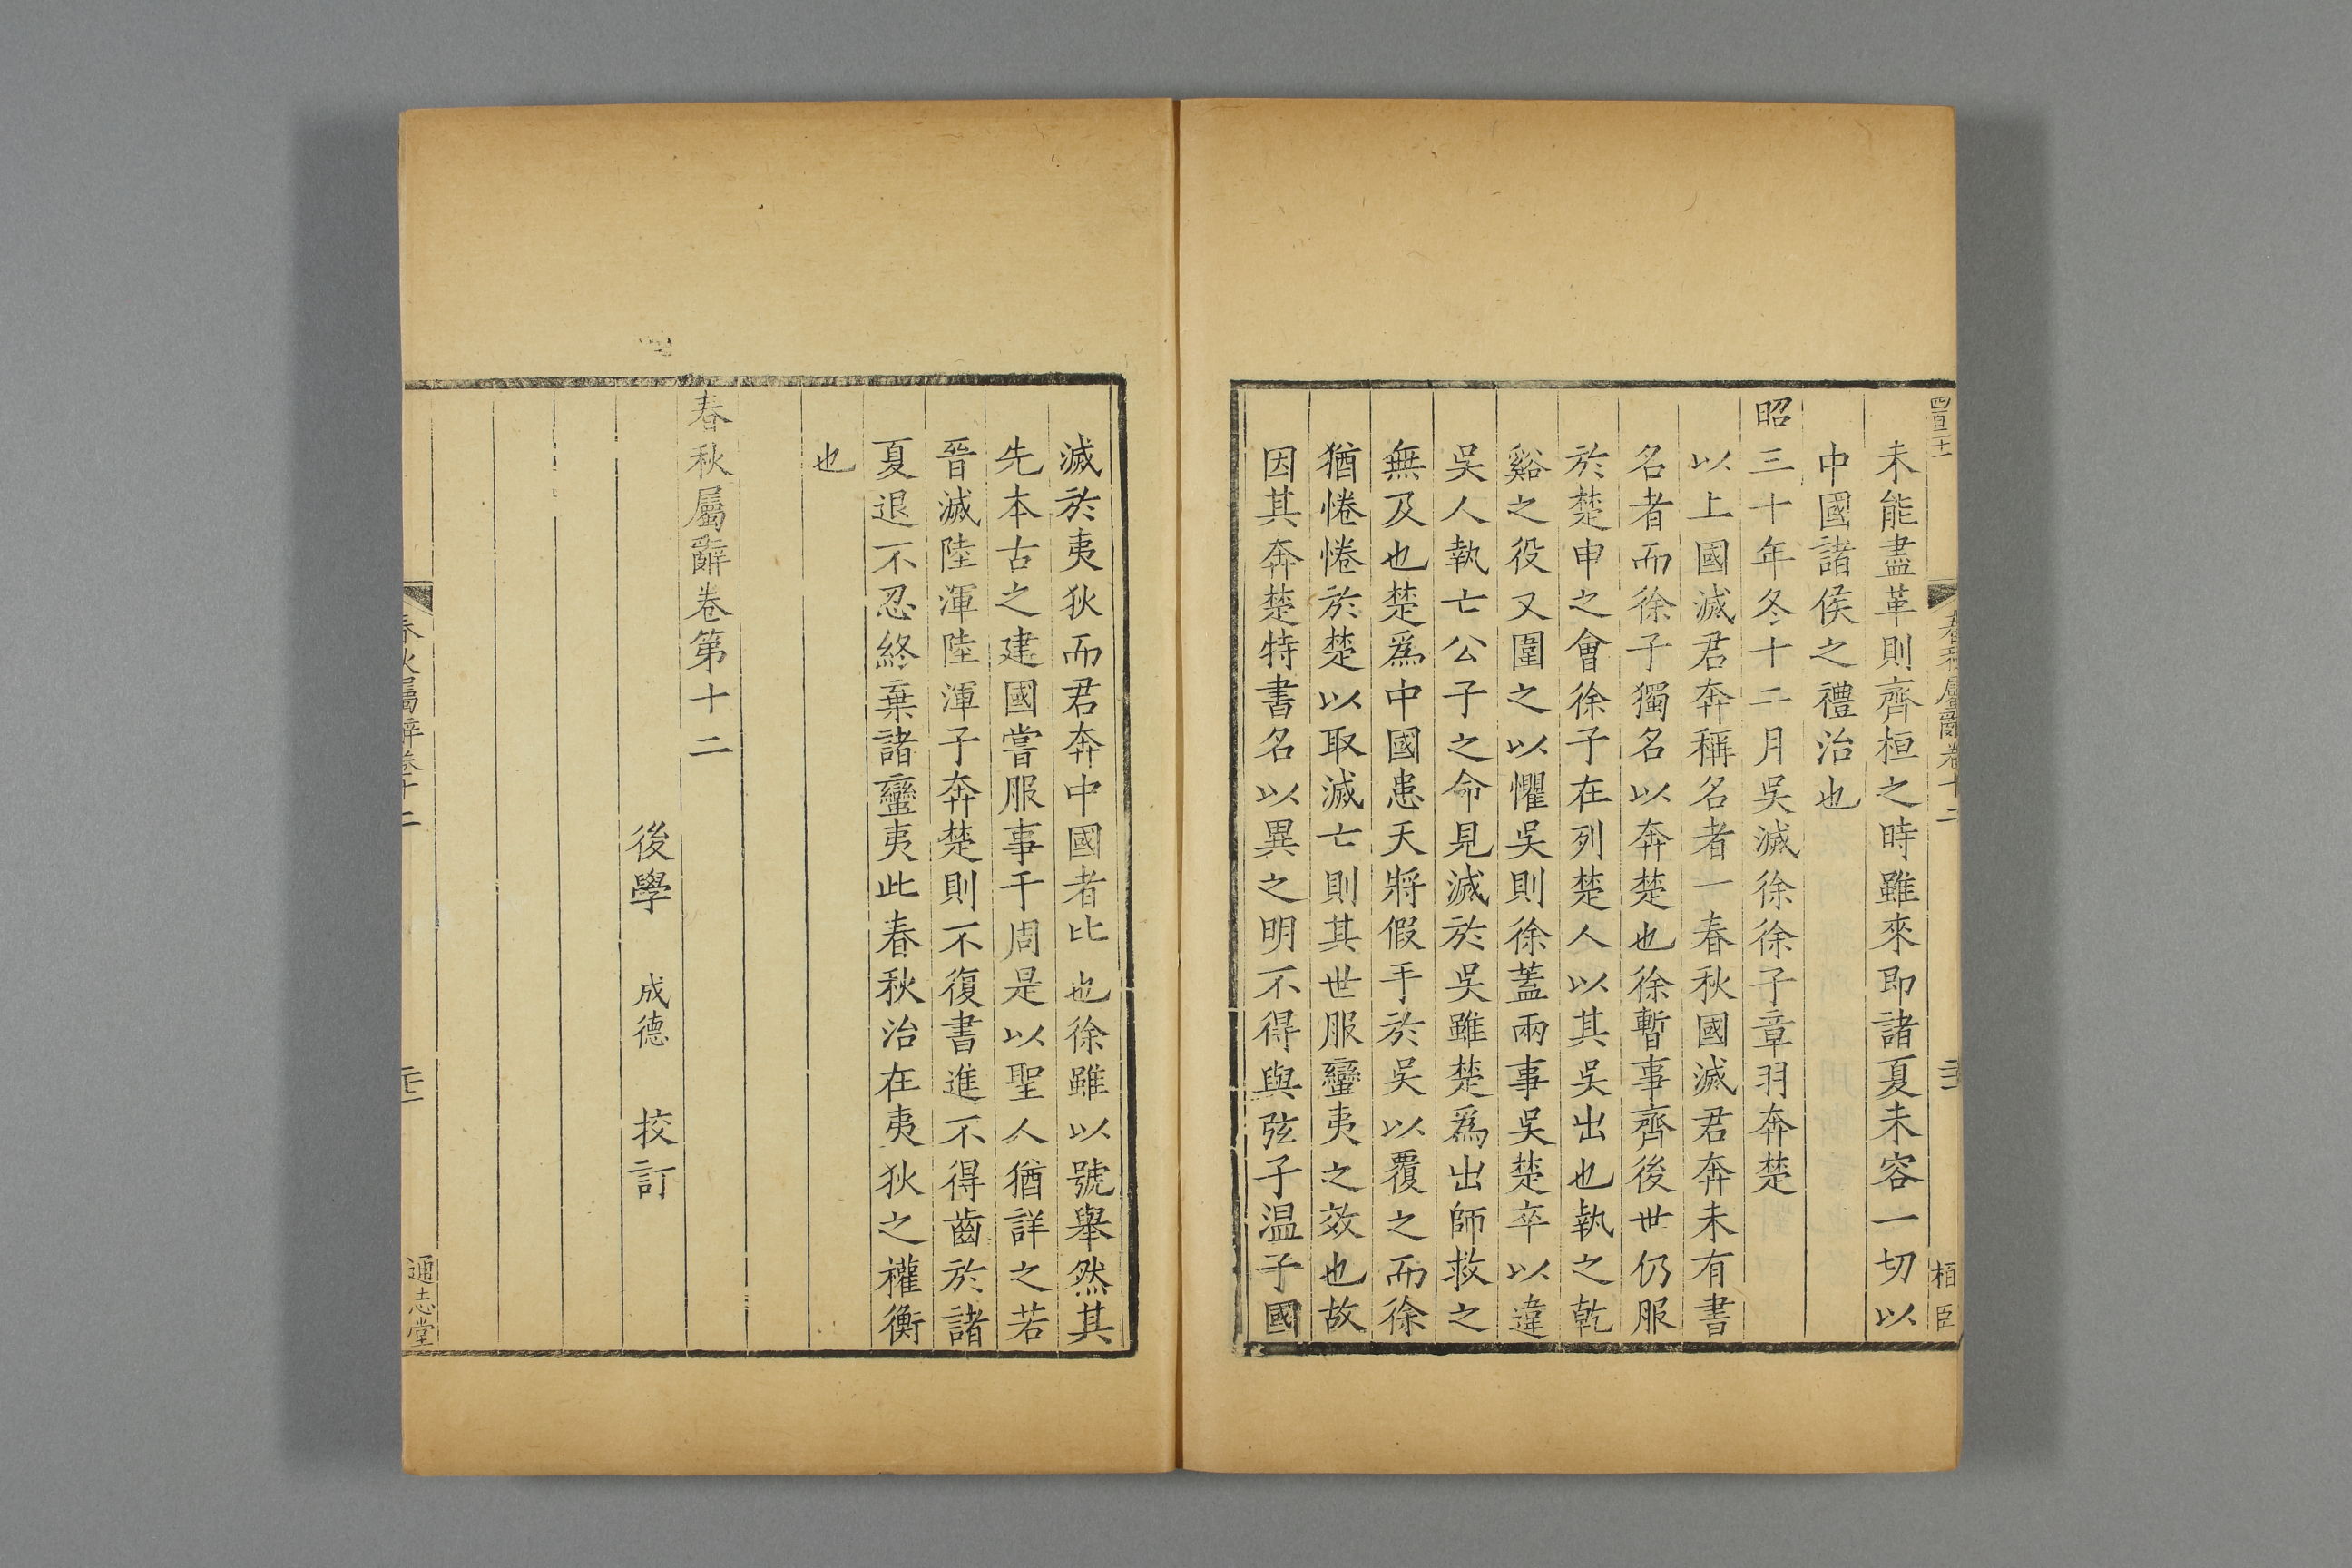 四百二十一
春秋屬辭卷十二
栢臣
未能盡革則齊桓之時雖來即諸夏未容一切以
中國諸侯之禮治也
昭三十年冬十二月吳滅徐徐子章羽奔楚
以上國滅君奔稱名者一春秋國滅君奔未有書
名者而徐子獨名以奔楚也徐暫事齊後世仍服
於楚申之會徐子在列楚人以其吳出也執之乾
谿之役又圍之以懼吳則徐蓋兩事吳楚卒以違
吳人執亡公子之命見滅於吳雖楚爲出師救之
無及也楚爲中國患天將假手於吳以覆之而徐
猶惓惓於楚以取滅亡則其世服蠻夷之效也故
因其奔楚特書名以異之明不得與弦子溫子國
滅於夷狄而君奔中國者比也徐雖以號舉然其
先本古之建國嘗服事于周是以聖人猶詳之若
晉滅陸渾陸渾子奔楚則不復書進不得齒於諸
夏退不忍終棄諸蠻夷此春秋治在夷狄之權衡
也
春秋屬辭卷第十二
後學 成德 挍訂
春秋屬辭卷十二
通志堂